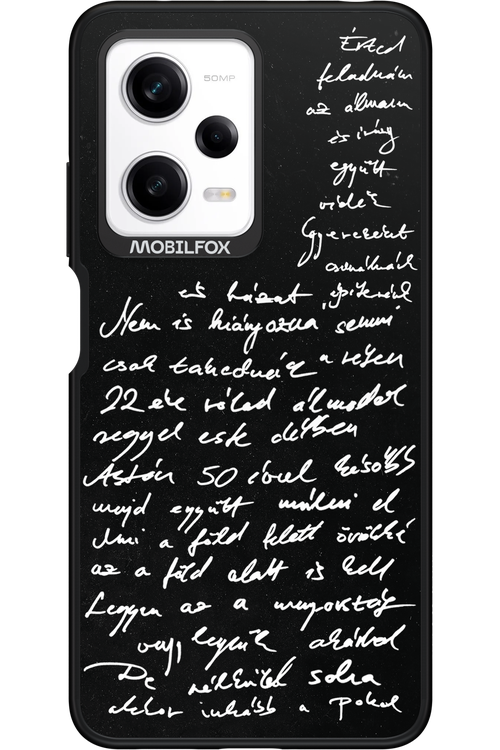 50MP
MOBILFOX
Érted
feladnám
az álmam
és irány
együtt
vidék
Gyerekeket
csinálnánk
és házat építenénk
Nem is hiányozna semmi
csak takednák a réten
22 éve rólad álmodok
reggel este délben
Aztán 50 évvel később
majd együtt múlni el
Ami a föld felett örökké
az a föld alatt is kell
Legyen az a mennyország
vagy legyünk akárhol
De nélküled soha
akkor inkább a pokol